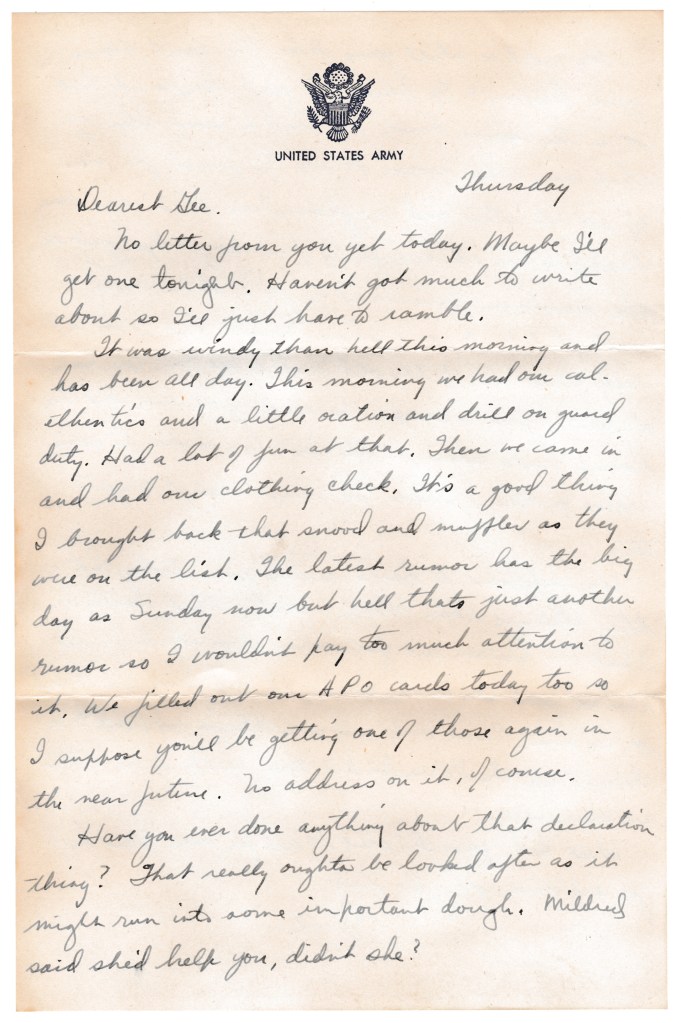 UNITED STATES ARMY
Thursday
Dearest Gee.
No letter from you yet today. Maybe I'll
get one tonight. Haven't got much to write
about so I'll just have to ramble.
It was windy than hell this morning and
has been all day. This morning we had our cal-
esthentics and a little oration and drill on guard
duty. Had a lot of fun at that. Then we came in
and had our clothing check. It's a good thing
I brought back that snood and muffler as they
were on the list. The latest rumor has the big
day as Sunday now but hell thats just another
rumor so I wouldn't pay too much attention to
it. We filled out our APO cards today too so
I suppose you'll be getting one of those again in
the near future. No address on it, of course.
Have you ever done anything about that declaration
thing? That really oughta be looked after as it
might run into some important dough. Mildred
said she'd help you, didn't she?